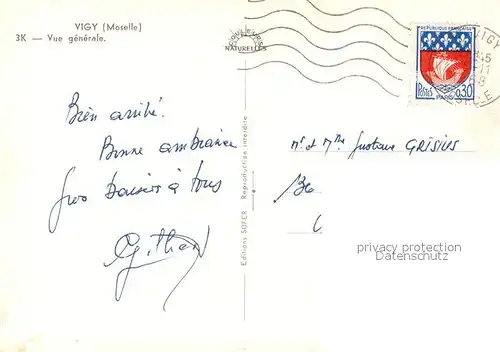 VIGY (Moselle)
3K — Vue générale.
COULEURS
NATURELLES
REPUBLIQUE FRANÇAISE
POSTES 0,30
PARIS
VIGY
MOSELLE
Bien arrivé.
Bonne ambiance
gros baisers à tous
Editions SOFER - Reproduction interdite
Mr et Mme Gustave GRISIUS
privacy protection
Datenschutz